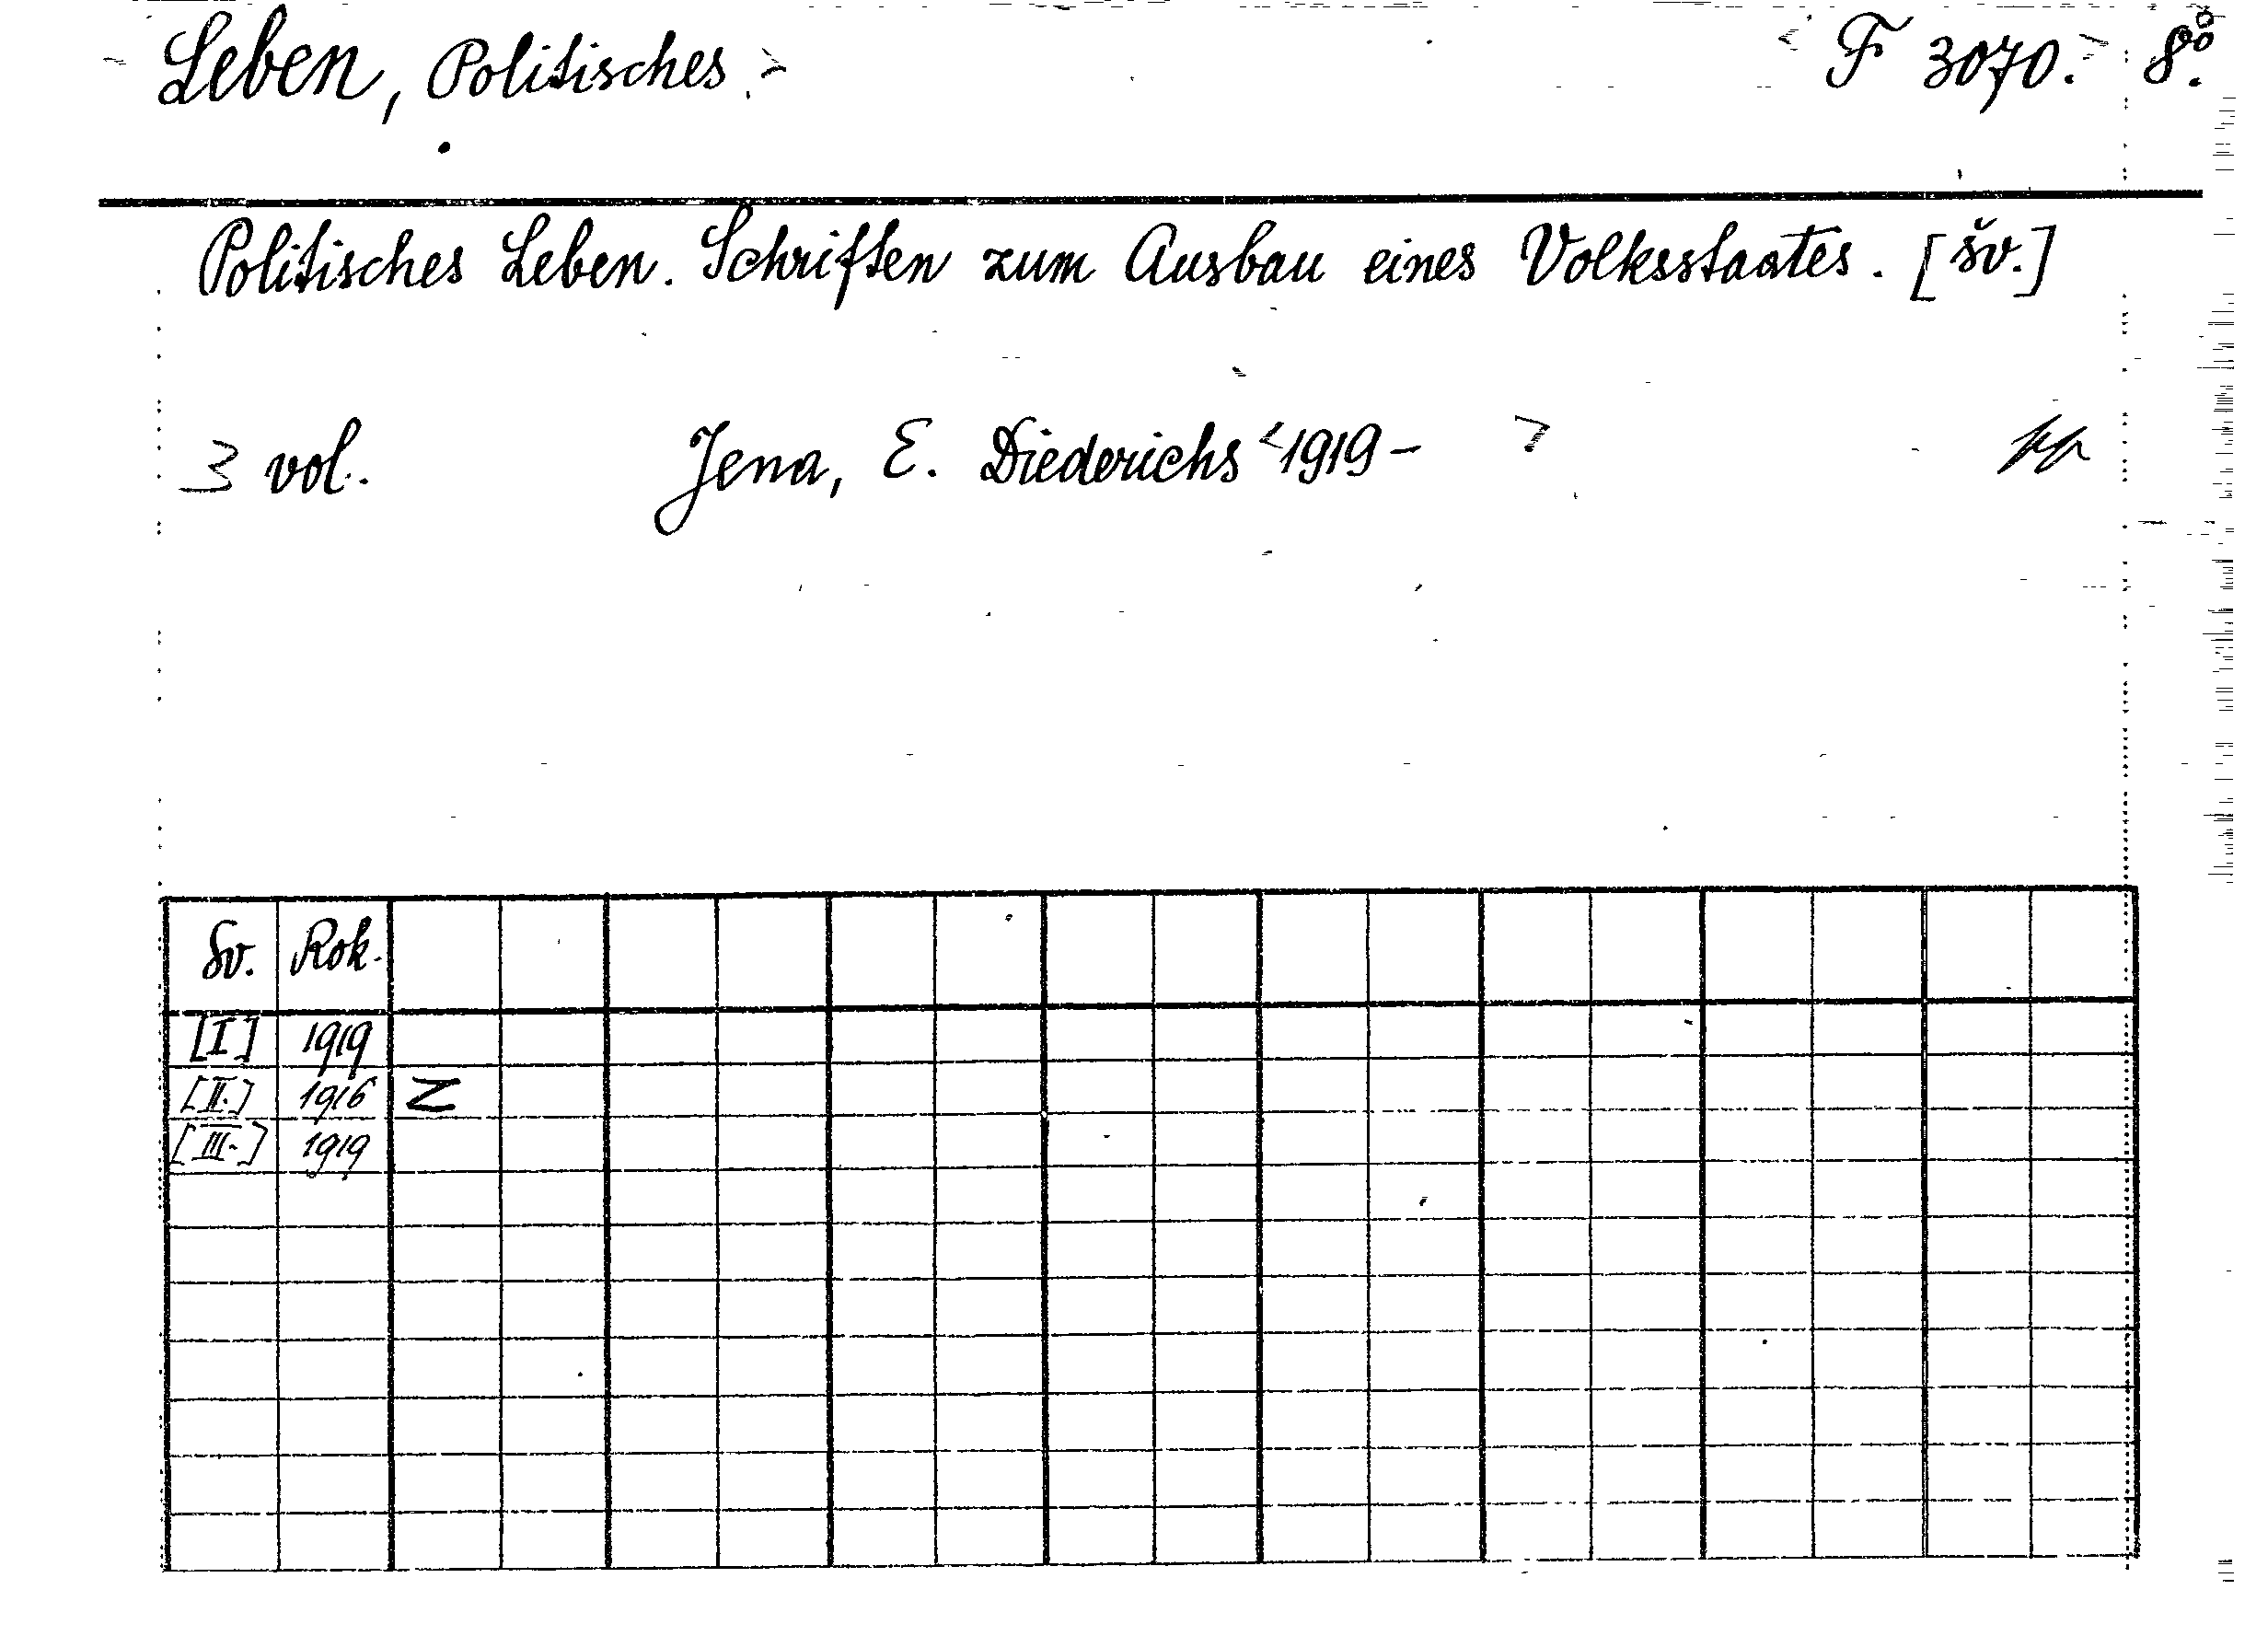 Leben, Politisches > < F 3070. > 8°.
Politisches Leben. Schriften zum Ausbau eines Volksstaates. [šv.]
3 vol. Jena, E. Diederichs <1919- >
Sv. Rok.
[I] 1919
[II.] 1916 Z
[III.] 1919